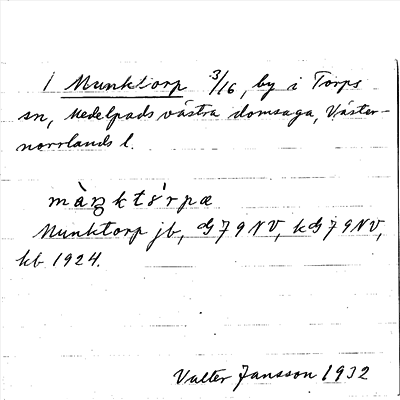 1 Munktorp 3/16, by i Torps
sn, Medelpads västra domsaga, Väster-
norrlands l.
màŋktɤ́rpæ
Munktorp jb, GJ 79 NV, kGJ 79 NV,
kb 1924.
Valter Jansson 1932